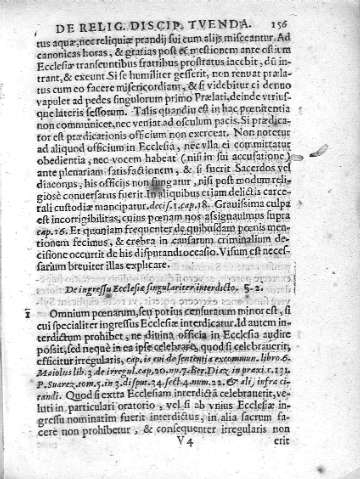 DE RELIG. DISCIP. TVENDA. 156
tus aquæ, nec reliquiæ prandij sui cum alijs misceantur. Ad
canonicas horas, & gratias post comestionem ante ostium
Ecclesiæ transeuntibus fratribus prostratus iacebit, dũ in-
trant, & exeunt. Si se humiliter gesserit, non renuat præla-
tus cum eo facere misericordiam, & si videbitur ei denuo
vapulet ad pedes singulorum primo Prælati, deinde vtrius-
que lateris sessorum. Talis quandiu est in hac pœnitentia
non communicet, nec veniat ad osculum pacis. Si prædica-
tor est prædicationis officium non exerceat. Non notetur
ad aliquod officium in Ecclesia, nec vlla ei committatur
obedientia, nec vocem habeat (nisi in sui accusatione)
ante plenariam satisfactionem, & si fuerit Sacerdos vel
diaconus, his officijs non fungatur, nisi post modum reli-
giosè conuersatus fuerit. In aliquibus etiam delictis carce-
rali custodiæ mancipatur. decis. 1. cap. 18. Grauissima culpa
est incorrigibilitas, cuius pœnam nos assignauimus supra
cap. 16. Et quoniam frequenter de quibusdam pœnis men-
tionem fecimus, & crebra in causarum criminalium de-
cisione occurrit de his disputandi occasio. Visum est neces-
sarium breuiter illas explicare.
De ingressu Ecclesiæ singulariter interdicto. §. 2.
1 Omnium pœnarum, seu potius censurarum minor est, si
cui specialiter ingressus Ecclesiæ interdicatur. Id autem in-
terdictum prohibet, ne diuina officia in Ecclesia audire
possit, sed nequè in ea ipse celebrare, quod si celebrauerit,
efficitur irregularis, cap. is cui de sententia excommun. libro 6.
Maiolus lib. 3. de irregul. cap. 20. nu. 7. Ber. Diez, in praxi c. 131.
P. Suarez, tom. 5. in 3. disput. 34. sect. 4. num. 22. & alij, infra ci-
tandi. Quod si extra Ecclesiam interdictâ celebrauerit, ve-
luti in particulari oratorio, vel si ab vnius Ecclesiæ in-
gressu nominatim fuerit interdictus, in alia sacrum fa-
cere non prohibetur, & consequenter irregularis non
V 4 erit